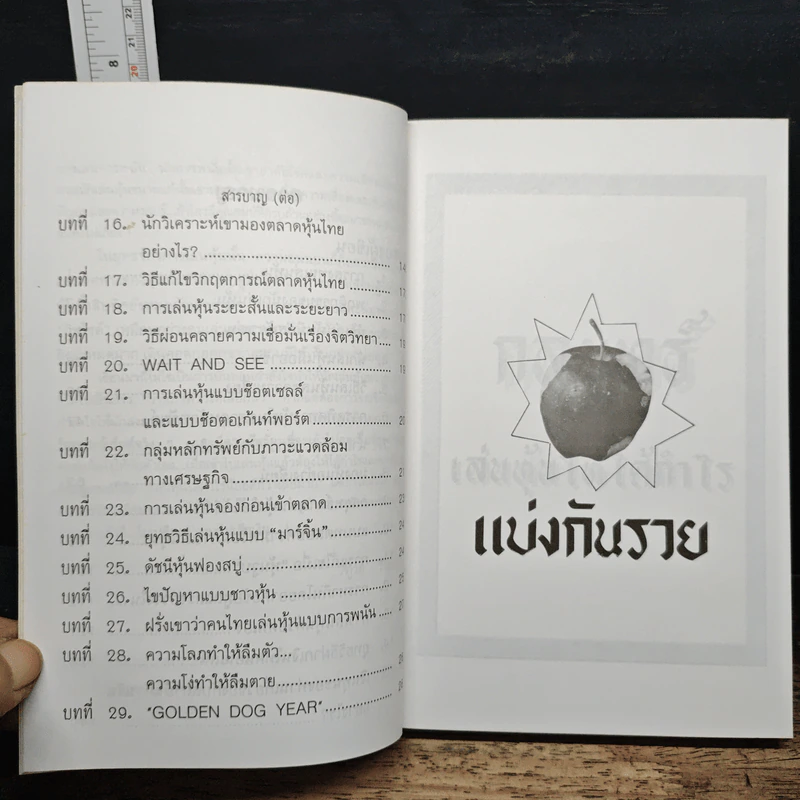 สารบาญ (ต่อ)
บทที่ 16. นักวิเคราะห์เขามองตลาดหุ้นไทย
อย่างไร?
บทที่ 17. วิธีแก้ไขวิกฤตการณ์ตลาดหุ้นไทย
บทที่ 18. การเล่นหุ้นระยะสั้นและระยะยาว
บทที่ 19. วิธีผ่อนคลายความเชื่อมั่นเรื่องจิตวิทยา
บทที่ 20. WAIT AND SEE
บทที่ 21. การเล่นหุ้นแบบช๊อตเซลล์
และแบบช๊อตอเก้นท์พอร์ต
บทที่ 22. กลุ่มหลักทรัพย์กับภาวะแวดล้อม
ทางเศรษฐกิจ
บทที่ 23. การเล่นหุ้นจองก่อนเข้าตลาด
บทที่ 24. ยุทธวิธีเล่นหุ้นแบบ "มาร์จิ้น"
บทที่ 25. ดัชนีหุ้นฟองสบู่
บทที่ 26. ไขปัญหาแบบชาวหุ้น
บทที่ 27. ฝรั่งเขาว่าคนไทยเล่นหุ้นแบบการพนัน
บทที่ 28. ความโลภทำให้ลืมตัว...
ความโง่ทำให้ลืมตาย
บทที่ 29. "GOLDEN DOG YEAR"
แบ่งกันรวย
8
20
21
22